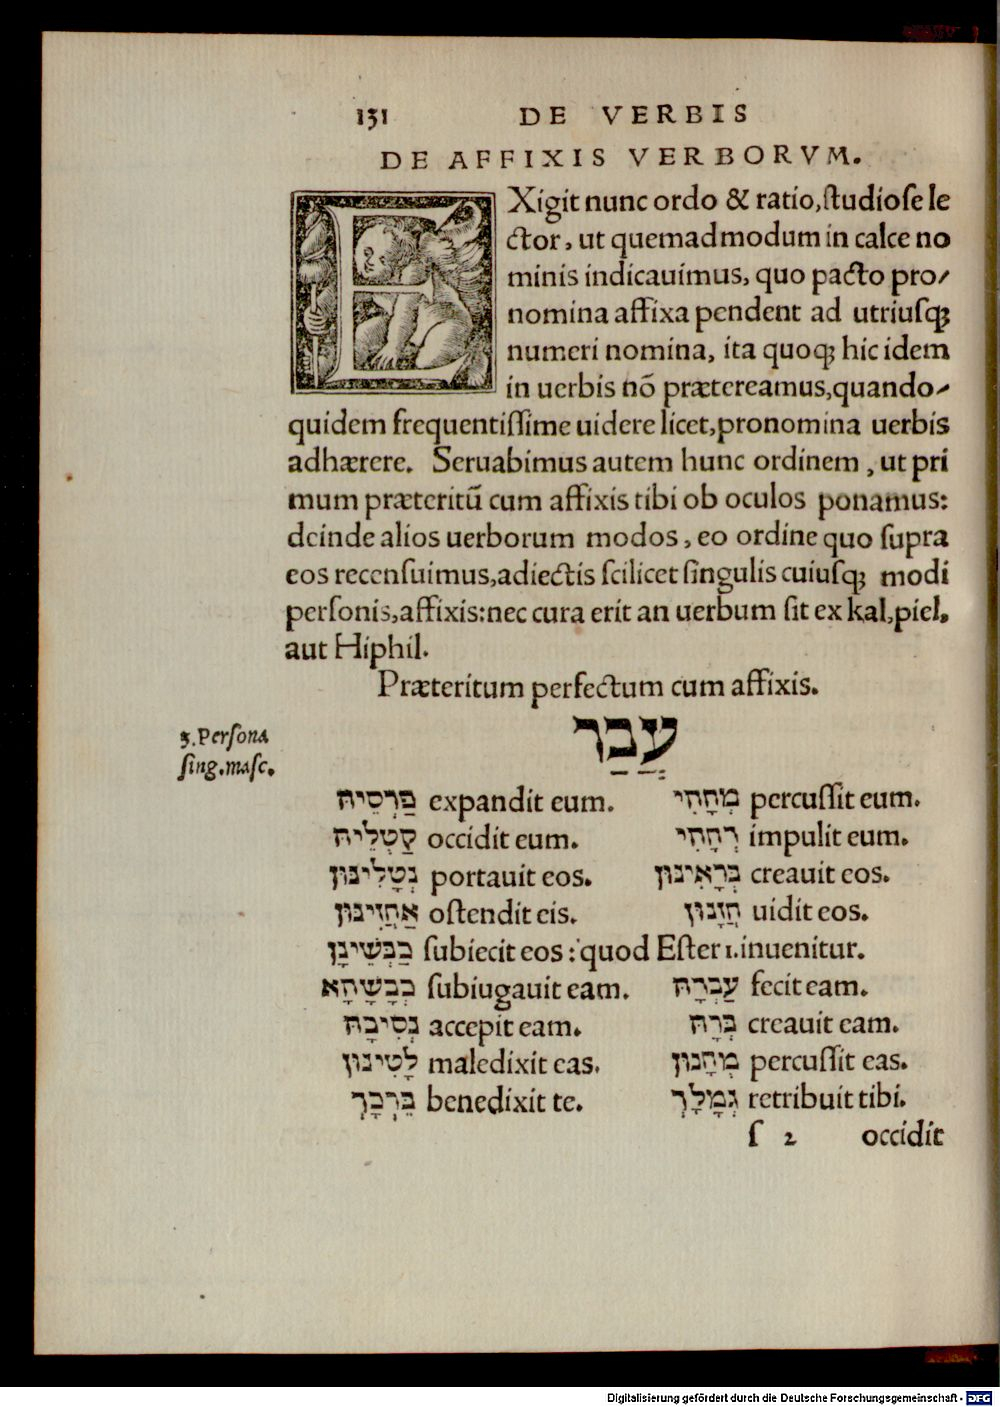 131 DE VERBIS
DE AFFIXIS VERBORVM.
EXigit nunc ordo & ratio, ſtudioſe le
ctor, ut quemadmodum in calce no
minis indicauimus, quo pacto pro/
nomina affixa pendent ad utriuſq;
numeri nomina, ita quoq; hic idem
in uerbis nō prætereamus, quando/
quidem frequentiſſime uidere licet, pronomina uerbis
adhærere. Seruabimus autem hunc ordinem, ut pri
mum præteritū cum affixis tibi ob oculos ponamus:
deinde alios uerborum modos, eo ordine quo ſupra
eos recenſuimus, adiectis ſcilicet ſingulis cuiuſq; modi
perſonis, affixis: nec cura erit an uerbum ſit ex kal, piel,
aut Hiphil.
Præteritum perfectum cum affixis.
עֲבַר
3. Perſona
ſing. maſc.
פַּרְסֵיהּ expandit eum. מְחָהִי percuſſit eum.
קַטְלֵיהּ occidit eum. דְּחָהִי impulit eum.
נְטָלִינּוּן portauit eos. בְּרָאִינּוּן creauit eos.
אַחֲזִינּוּן oſtendit eis. חֲזָנוּן uidit eos.
כַּבְּשִׁינָן ſubiecit eos: quod Eſter 1. inuenitur.
כְּבָשָׁהָא ſubiugauit eam. עַבְרָהּ fecit eam.
נְסִיבָהּ accepit eam. בְּרָהּ creauit eam.
לָטִינּוּן maledixit eas. מְחָנוּן percuſſit eas.
בֵּרְכָךְ benedixit te. גְּמָלָךְ retribuit tibi.
ſ 2 occidit
Digitalisierung gefördert durch die Deutsche Forschungsgemeinschaft - DFG